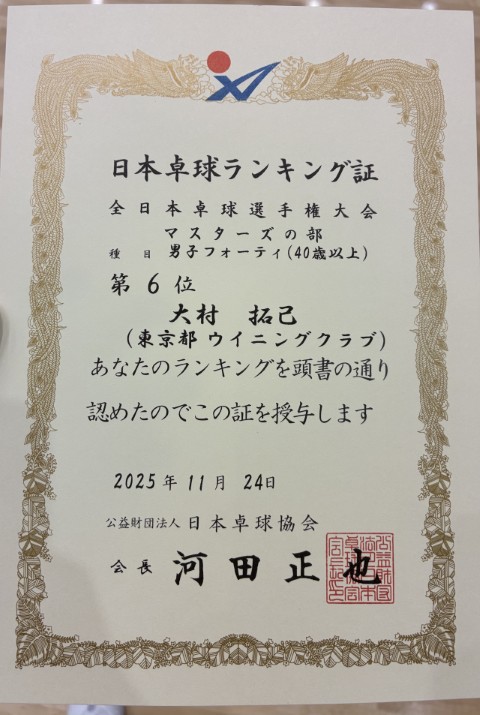 日本卓球ランキング証
全日本卓球選手権大会
マスターズの部
種 目 男子フォーティ(40歳以上)
第 6 位
大村 拓己
(東京都 ウイニングクラブ)
あなたのランキングを頭書の通り
認めたのでこの証を授与します
2025年 11月 24日
公益財団法人 日本卓球協会
会長 河田正也